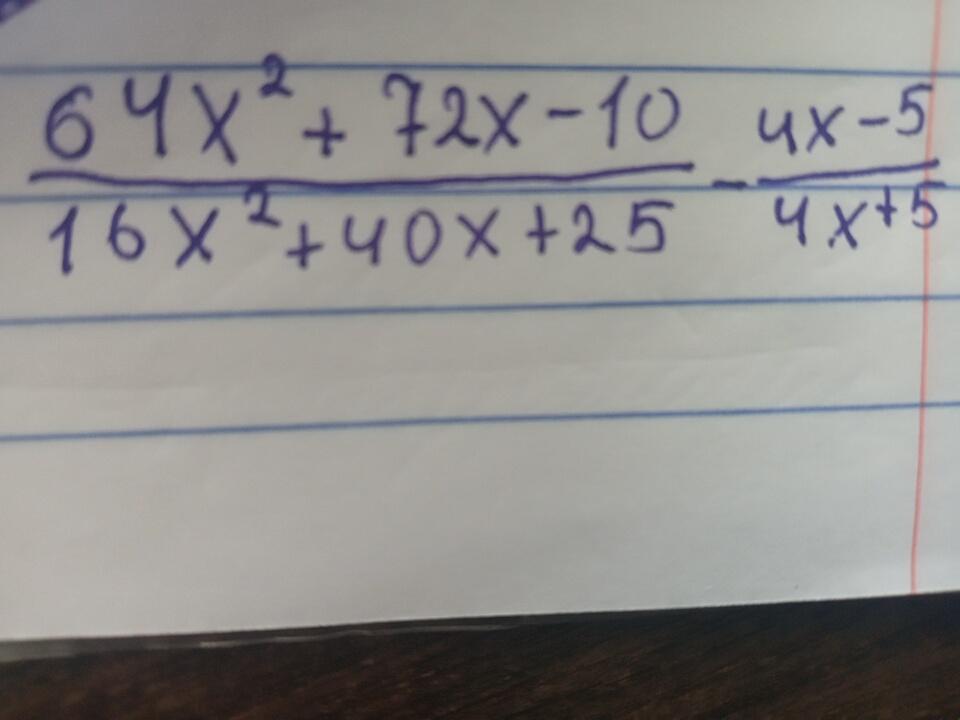 64x² + 72x - 10
16x² + 40x + 25
-
4x - 5
4x + 5